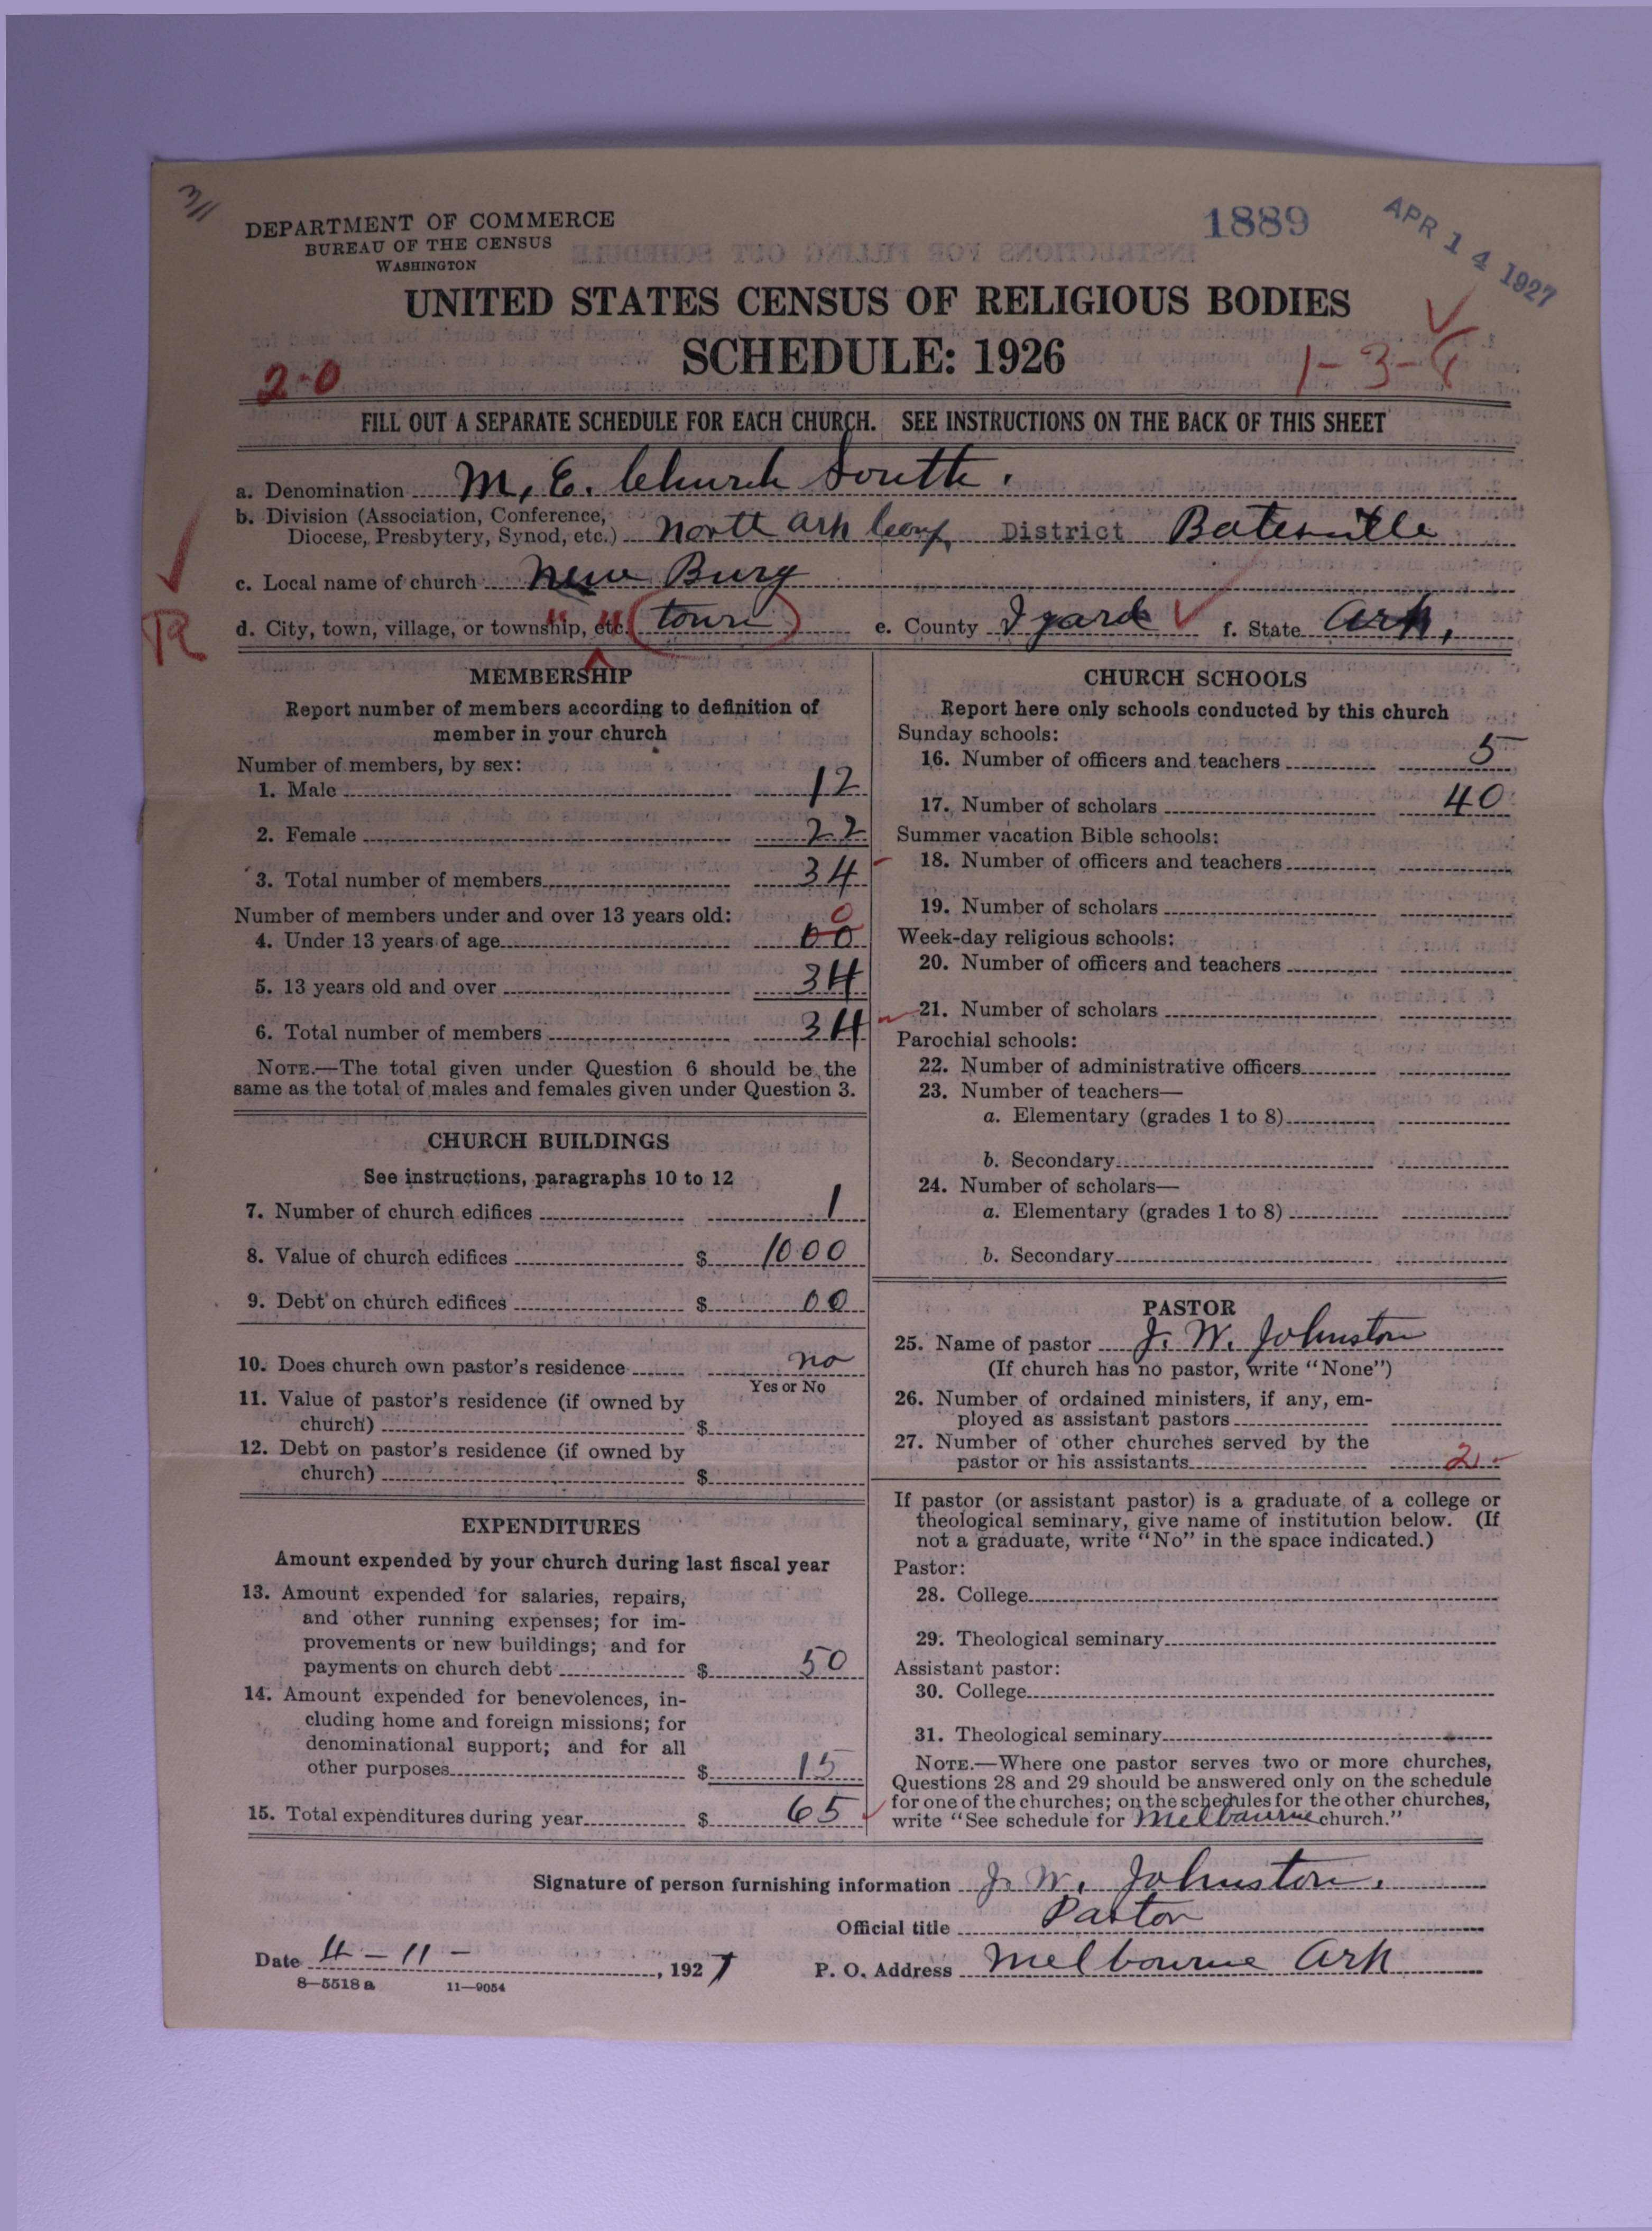 3/1
DEPARTMENT OF COMMERCE
BUREAU OF THE CENSUS
WASHINGTON
1889
APR 14 1927
UNITED STATES CENSUS OF RELIGIOUS BODIES
SCHEDULE: 1926
2-0
1-3-
FILL OUT A SEPARATE SCHEDULE FOR EACH CHURCH. SEE INSTRUCTIONS ON THE BACK OF THIS SHEET
a. Denomination M. E. Church South.
b. Division (Association, Conference, Diocese, Presbytery, Synod, etc.) North Ark Conf District Batesville
c. Local name of church New Burg
R
d. City, town, village, or township, etc. " " (town) e. County Izard f. State Ark.
MEMBERSHIP
Report number of members according to definition of
member in your church
Number of members, by sex:
1. Male 12
2. Female 22
3. Total number of members 34
Number of members under and over 13 years old:
4. Under 13 years of age 00 0
5. 13 years old and over 34
6. Total number of members 34
NOTE.—The total given under Question 6 should be the
same as the total of males and females given under Question 3.
CHURCH BUILDINGS
See instructions, paragraphs 10 to 12
7. Number of church edifices 1
8. Value of church edifices $ 1000
9. Debt on church edifices $ 00
10. Does church own pastor's residence no
Yes or No
11. Value of pastor's residence (if owned by
church) $
12. Debt on pastor's residence (if owned by
church) $
EXPENDITURES
Amount expended by your church during last fiscal year
13. Amount expended for salaries, repairs,
and other running expenses; for im-
provements or new buildings; and for
payments on church debt $ 50
14. Amount expended for benevolences, in-
cluding home and foreign missions; for
denominational support; and for all
other purposes $ 15
15. Total expenditures during year $ 65
CHURCH SCHOOLS
Report here only schools conducted by this church
Sunday schools:
16. Number of officers and teachers 5
17. Number of scholars 40
Summer vacation Bible schools:
18. Number of officers and teachers
19. Number of scholars
Week-day religious schools:
20. Number of officers and teachers
21. Number of scholars
Parochial schools:
22. Number of administrative officers
23. Number of teachers—
a. Elementary (grades 1 to 8)
b. Secondary
24. Number of scholars—
a. Elementary (grades 1 to 8)
b. Secondary
PASTOR
25. Name of pastor J. W. Johnston
(If church has no pastor, write "None")
26. Number of ordained ministers, if any, em-
ployed as assistant pastors
27. Number of other churches served by the
pastor or his assistants 2
If pastor (or assistant pastor) is a graduate of a college or
theological seminary, give name of institution below. (If
not a graduate, write "No" in the space indicated.)
Pastor:
28. College
29. Theological seminary
Assistant pastor:
30. College
31. Theological seminary
NOTE.—Where one pastor serves two or more churches,
Questions 28 and 29 should be answered only on the schedule
for one of the churches; on the schedules for the other churches,
write "See schedule for Melbourne church."
Signature of person furnishing information J. W. Johnston.
Official title Pastor
Date 4-11-, 1927 P. O. Address Melbourne Ark
8—5518 a 11—9054